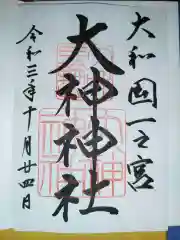 大和国一之宮
大神神社
令和三年十月廿四日